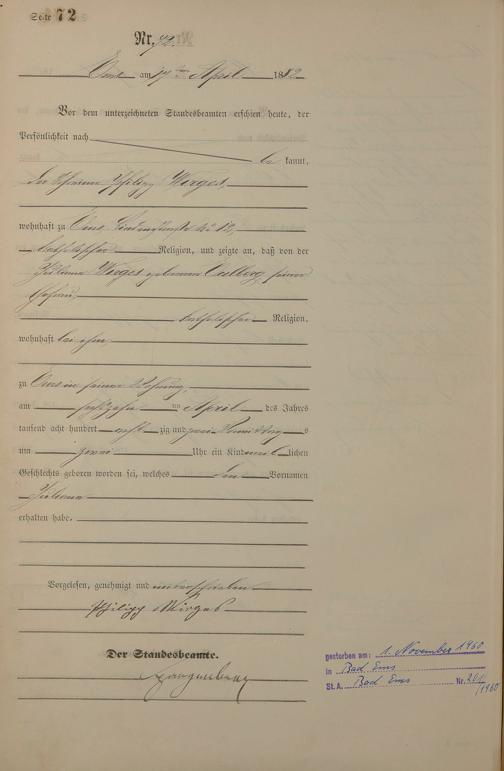 Seite 72
Nr. 72.
Ems am 17ten April 1882
Vor dem unterzeichneten Standesbeamten erschien heute, der
Persönlichkeit nach
be kannt,
der Philipp Wirges,
wohnhaft zu Ems, No 12,
katholischer Religion, und zeigte an, daß von der
Juliana Wirges geborenen seiner
Ehefrau,
katholischer Religion,
wohnhaft bei ihm,
zu Ems in seiner Wohnung,
am sechszehn ten April des Jahres
tausend acht hundert acht zig und zwei Vormittags
um zwei Uhr ein Kind weib lichen
Geschlechts geboren worden sei, welches den Vornamen
Juliana
erhalten habe.
Vorgelesen, genehmigt und unterschrieben
Philipp Wirges
Der Standesbeamte.
gestorben am: 1. November 1960
in Bad Ems
St. A. Bad Ems Nr.
/1960